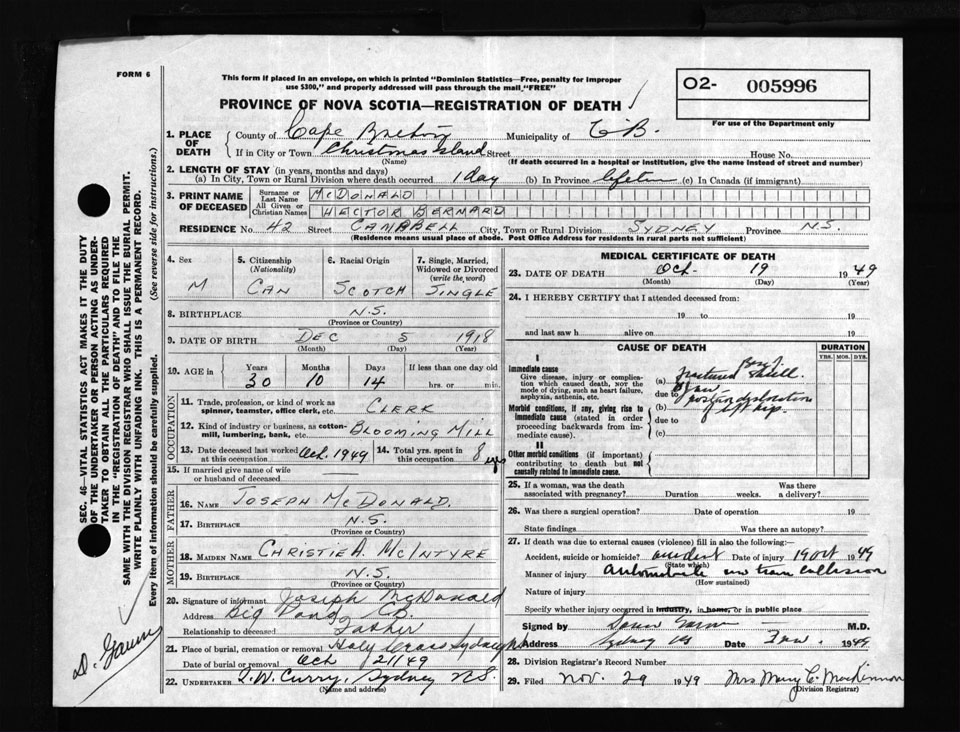 FORM 6
This form if placed in an envelope, on which is printed "Dominion Statistics—Free, penalty for improper
use $300," and properly addressed will pass through the mail "FREE"
O2- 005996
For use of the Department only
PROVINCE OF NOVA SCOTIA—REGISTRATION OF DEATH
1. PLACE OF DEATH County of Cape Breton Municipality of C.B.
If in City or Town Christmas Island Street House No.
(Name) (If death occurred in a hospital or institution, give the name instead of street and number)
2. LENGTH OF STAY (in years, months and days)
(a) In City, Town or Rural Division where death occurred 1 day (b) In Province (c) In Canada (if immigrant)
3. PRINT NAME OF DECEASED Surname or Last Name McDONALD
All Given or Christian Names HECTOR BERNARD
RESIDENCE No. 42 Street CAMPBELL City, Town or Rural Division SYDNEY Province N.S.
(Residence means usual place of abode. Post Office Address for residents in rural parts not sufficient)
4. Sex M
5. Citizenship (Nationality) CAN
6. Racial Origin SCOTCH
7. Single, Married, Widowed or Divorced (write the word) SINGLE
8. BIRTHPLACE N.S.
(Province or Country)
9. DATE OF BIRTH DEC 5 1918
(Month) (Day) (Year)
10. AGE in Years 30 Months 10 Days 14 If less than one day old hrs. or min.
OCCUPATION
11. Trade, profession, or kind of work as
spinner, teamster, office clerk, etc. CLERK
12. Kind of industry or business, as cotton-
mill, lumbering, bank, etc. BLOOMING MILL
13. Date deceased last worked at this occupation Oct. 1949
14. Total yrs. spent in this occupation 8 yrs
15. If married give name of wife
or husband of deceased
FATHER
16. NAME JOSEPH McDONALD.
17. BIRTHPLACE N.S.
(Province or Country)
MOTHER
18. MAIDEN NAME CHRISTIE A. McINTYRE
19. BIRTHPLACE N.S.
(Province or Country)
20. Signature of informant Joseph McDonald
Address Big Pond C.B.
Relationship to deceased Father
21. Place of burial, cremation or removal Holy Cross Sydney
Date of burial or removal Oct 21/49
22. UNDERTAKER T.W. Curry, Sydney N.S.
(Name and address)
MEDICAL CERTIFICATE OF DEATH
23. DATE OF DEATH Oct. 19 1949
(Month) (Day) (Year)
24. I HEREBY CERTIFY that I attended deceased from:
19 to 19
and last saw h alive on 19
CAUSE OF DEATH
DURATION
YRS. MOS. DYS.
I
Immediate cause
Give disease, injury or complication
which caused death, nor the
mode of dying, such as heart failure,
asphyxia, asthenia, etc.
(a) fractured Base of skull.
due to & jaw
Morbid conditions, if any, giving rise to
immediate cause (stated in order
proceeding backwards from immediate
cause).
(b) dislocation
due to of left hip.
(c)
II
Other morbid conditions (if important)
contributing to death but not
causally related to immediate cause.
25. If a woman, was the death
associated with pregnancy? Duration weeks. Was there a delivery?
26. Was there a surgical operation? Date of operation 19
State findings Was there an autopsy?
27. If death was due to external causes (violence) fill in also the following:—
Accident, suicide or homicide? accident Date of injury 19 Oct 1949
(State which)
Manner of injury Automobile and train collision
(How sustained)
Nature of injury
Specify whether injury occurred in industry, in home, or in public place
Signed by M.D.
Address Sydney Date 1949
28. Division Registrar's Record Number
29. Filed Nov. 29 1949 Mrs Mary C. MacKinnon
(Division Registrar)
SEC. 46—VITAL STATISTICS ACT MAKES IT THE DUTY
OF THE UNDERTAKER OR PERSON ACTING AS UNDER-
TAKER TO OBTAIN ALL THE PARTICULARS REQUIRED
IN THE "REGISTRATION OF DEATH" AND TO FILE THE
SAME WITH THE DIVISION REGISTRAR WHO SHALL ISSUE THE BURIAL PERMIT.
WRITE PLAINLY WITH UNFADING INK. THIS IS A PERMANENT RECORD.
Every item of information should be carefully supplied. (See reverse side for instructions.)